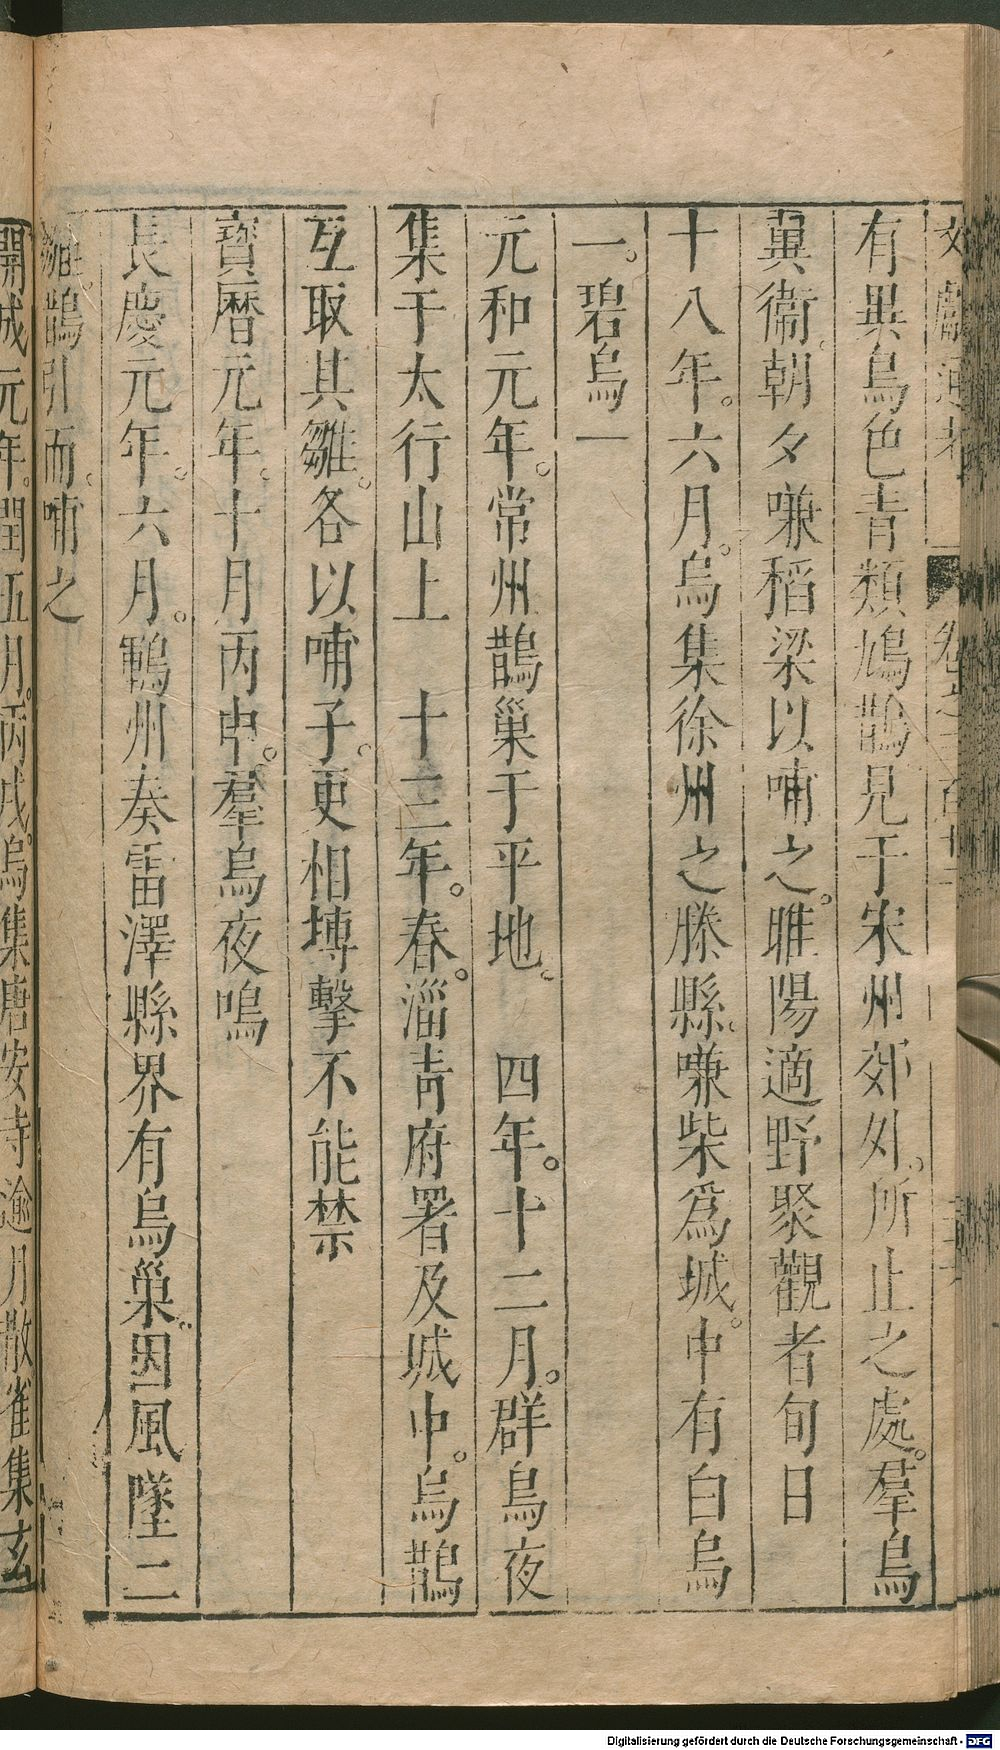 文獻通考 卷之三百十三
有異鳥色青類鳩鵲見于宋州郊外所止之處羣鳥
翼衞朝夕嗛稻梁以哺之睢陽適野聚觀者旬日
十八年六月烏集徐州之滕縣嗛柴爲城中有白烏
一碧烏一
元和元年常州鵲巢于平地 四年十二月群鳥夜
集于太行山上 十三年春淄青府署及城中烏鵲
互取其雛各以哺子更相摶擊不能禁
寶曆元年十月丙申羣烏夜鳴
長慶元年六月鄆州奏雷澤縣界有烏巢因風墜二
雛鵲引而哺之
開成元年閏五月丙戌烏集唐安寺逾月散雀集玄
Digitalisierung gefördert durch die Deutsche Forschungsgemeinschaft - DFG